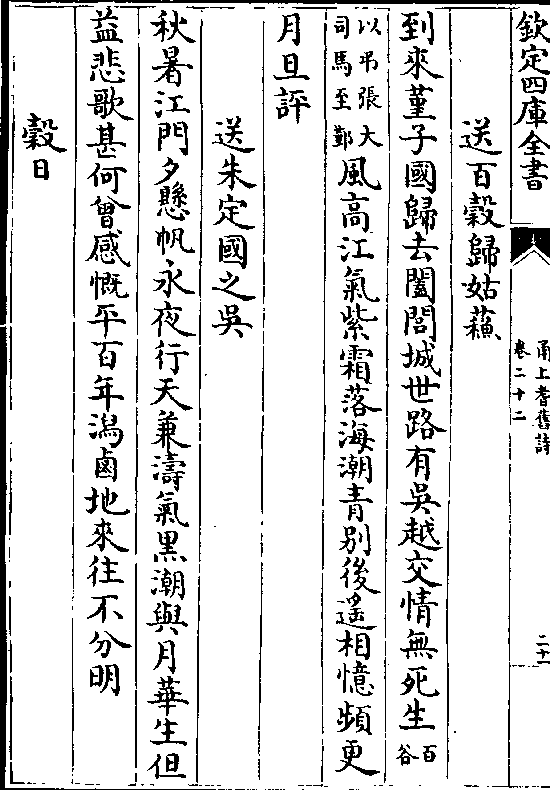 欽定四庫全書
甬上耆舊詩
卷二十二
二十一
送百穀歸姑蘓
到來堇子國歸去闔閭城世路有吳越交情無死生百谷
以弔張大司馬至鄞風高江氣紫霜落海潮青别後遥相憶頻更
月旦評
送朱定國之吳
秋暑江門夕懸帆永夜行天兼濤氣黒潮與月華生但
益悲歌甚何曾感慨平百年潟鹵地來往不分明
穀日